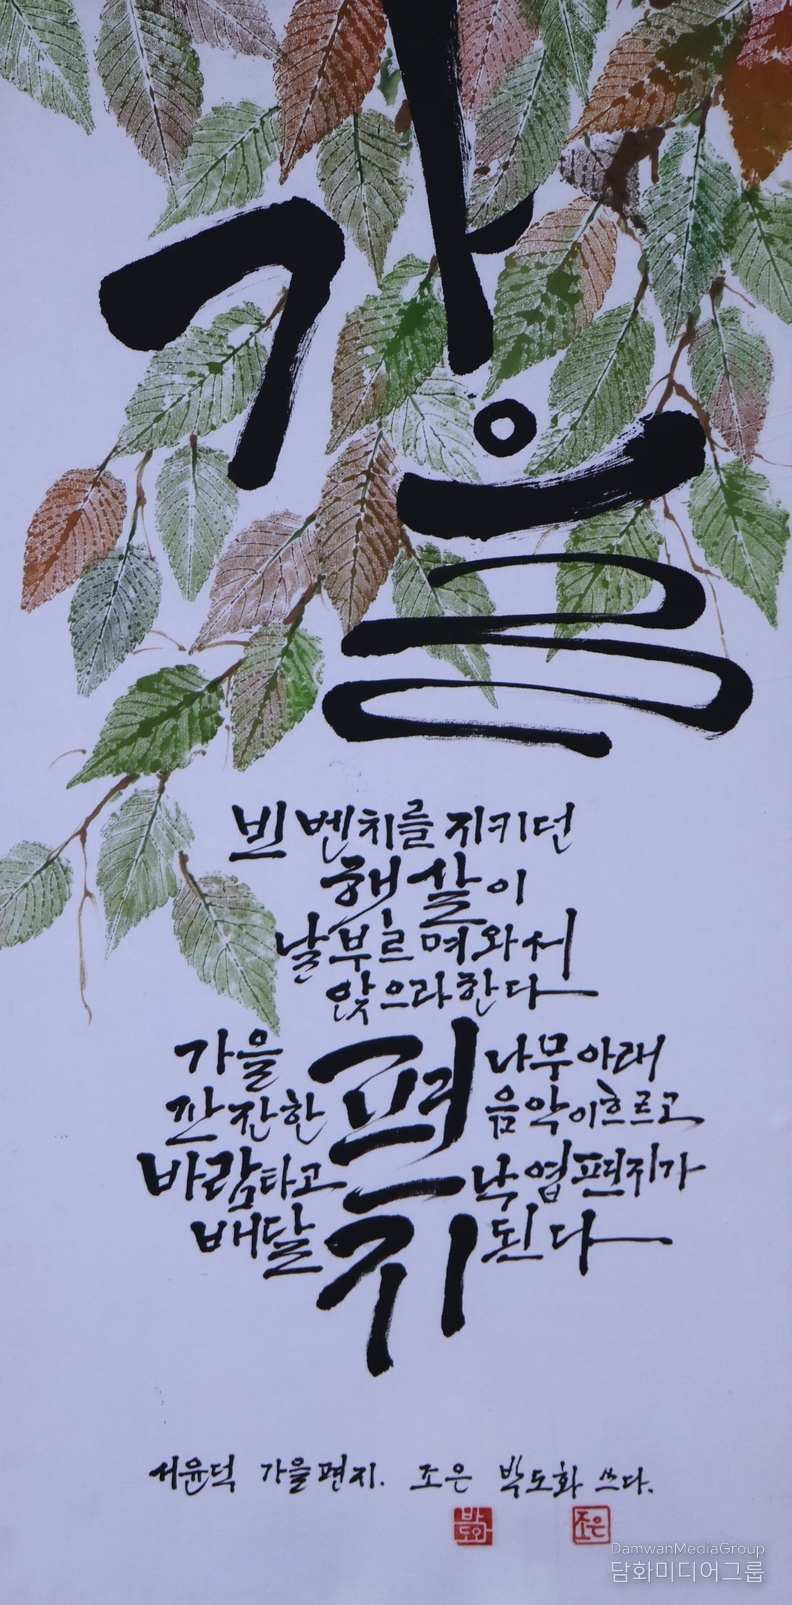 가을
빈 벤치를 지키던
햇살이
날 부르며 와서
앉으라 한다
편지
가을
잔잔한
바람타고
배달
나무아래
음악이흐르고
낙엽편지가
된다
서윤덕 가을편지. 조은 박도화 쓰다.
조은
DamwhaMediaGroup
담화미디어그룹